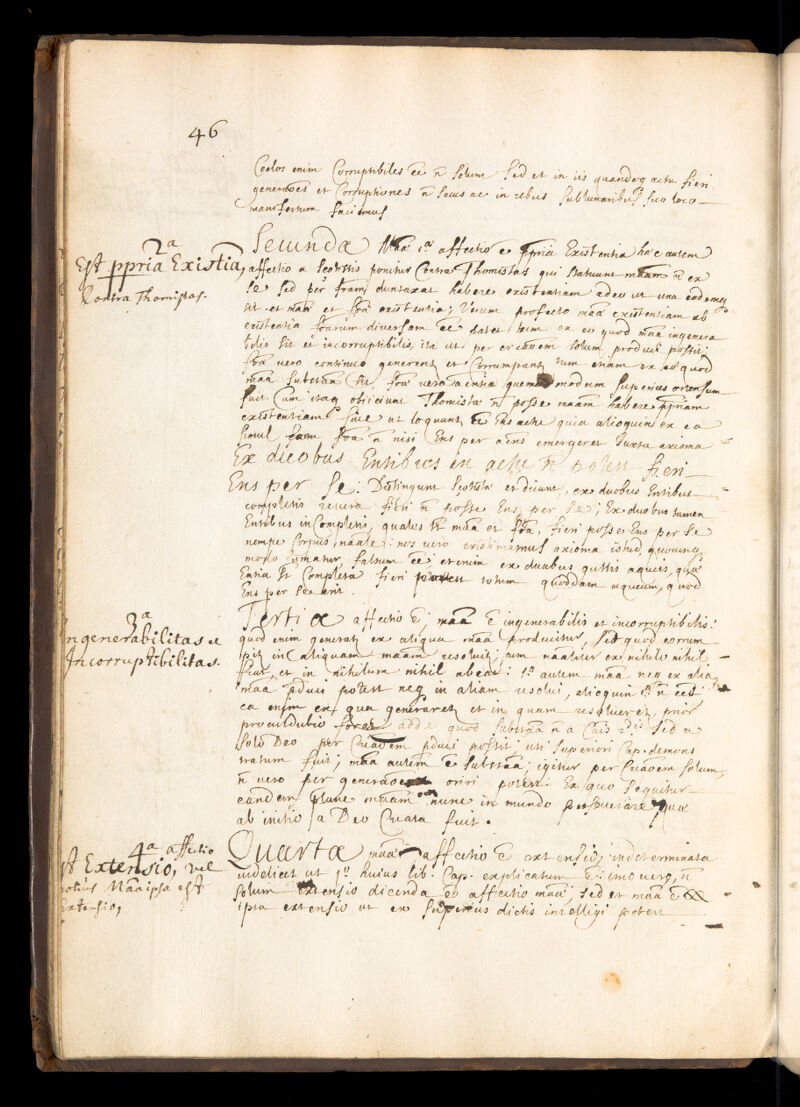 46
Coelos enim Corruptibiles ee n̄ solum Sed et in iis quandoq actu fieri
generāoes et Corruptiones n̄ secus ac in rebus Sublunaribus suo loco
manifestum faciemus
2a
Est ppria Existīa,
Contra Thomistas.
Secunda Māa 1a affectio e ppria Existentia haec autem
affectio a Scotistis ponitur Contra Thomistas qui statuunt māam n̄ ex
se sed per fr̄am duntaxat habere existentiam adeo ut una eademq
sit et māa et fr̄a existentia; Verum profecto māa existentiam ab
existentia fr̄arum diversam ee patet tum ex eo quod māa ingenera
bilis sit et incorruptibilis, ita ut per crāoem solum produci possit
fr̄a vero continuo generent et Corrumpant tum etiam ex eo quod
māa substāa sit, fr̄a vero quemadmodum superius ostensum
fuit Cum itaq obiiciunt Thomistae n̄ posse māam habere ppriam
existentiam sive ut loquunt ee Ens actu quia alioquin ex ea
simul fr̄a n̄ nisi Ens per aens emergeret Juxta axioma
Ex duobus Entibus in actu n̄ potest fieri
Ens per se: Distingunt Scotistae et dicunt, ex duobus Entibus
completis revera fieri n̄ posse Ens per se; Ex duobus tamen
Entibus inCompletis, quales st māa et fr̄a, fieri posse Ens per se
nempe Corpus nāale: nos vero existimamus axioma istud, quocunq
modo sumatur falsum ee: etenim ex duabus guttis aquae, quae
Entia st Completa fieri potest totum quoddam aqueum, quod
Ens per se erit.
3a
Ingenerabilitas et
Incorruptibilitas.
Tertia affectio ē, māa ē ingenerabilis et incorruptibilis:
quod enim generat ex aliqua māa producitur, sed quod corrum
pit in aliquam māam resolvit; nam nāaliter ex nihilo nihil
fiat, et in nihilum nihil abeat: 1a autem māa neq ex alia
māa pduci potest neq in aliam resolui, alioquin 1a n̄ eet
ea enim ex qua generaret et in quam resolueret, prior
proculdubio foret adde quod substāa n̄ a Causis 2dis Sed a
solo Deo per Crāoem pduci possit, uti Superiori Cap. demons
tratum fuit; māa autem ē substāa; igitur per Crāoem solum,
n̄ vero per generāoem oriri potest. Ex quo sequitur
eandem plane māam nunc in mundo perseverare quae
ab initio a Deo Creata fuit.
4a affectio
est Extensio, vel
potius Māa ipsa est
Extensio,
Quarta māa affectio ē extensio, indeterminata
videlicet ut 1o huius lib. Cap. explicatum ē: imo vero, n̄
solum extensio dicenda ē affectio māa, sed et māa ē
ipsa extensio ut ex superius dictis intelligi potest